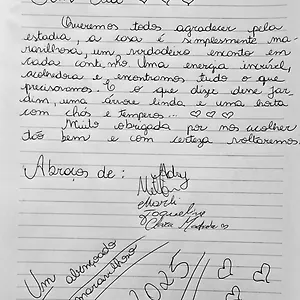 Queremos todos agradecer pela
estadia, a casa é simplesmente ma-
ravilhosa, um verdadeiro encanto em
cada cantinho. Uma energia incrível,
acolhedora e encontramos tudo o que
precisavamos. E o que dizer desse jar
dim, uma árvore linda e uma horta
com chás e temperos... ♡ ♡ ♡
Muito obrigada por nos acolher
tão bem e com certeza voltaremos.
Abraços de:
Marli
Joqueline
Um abençoado
maravilhoso
2025